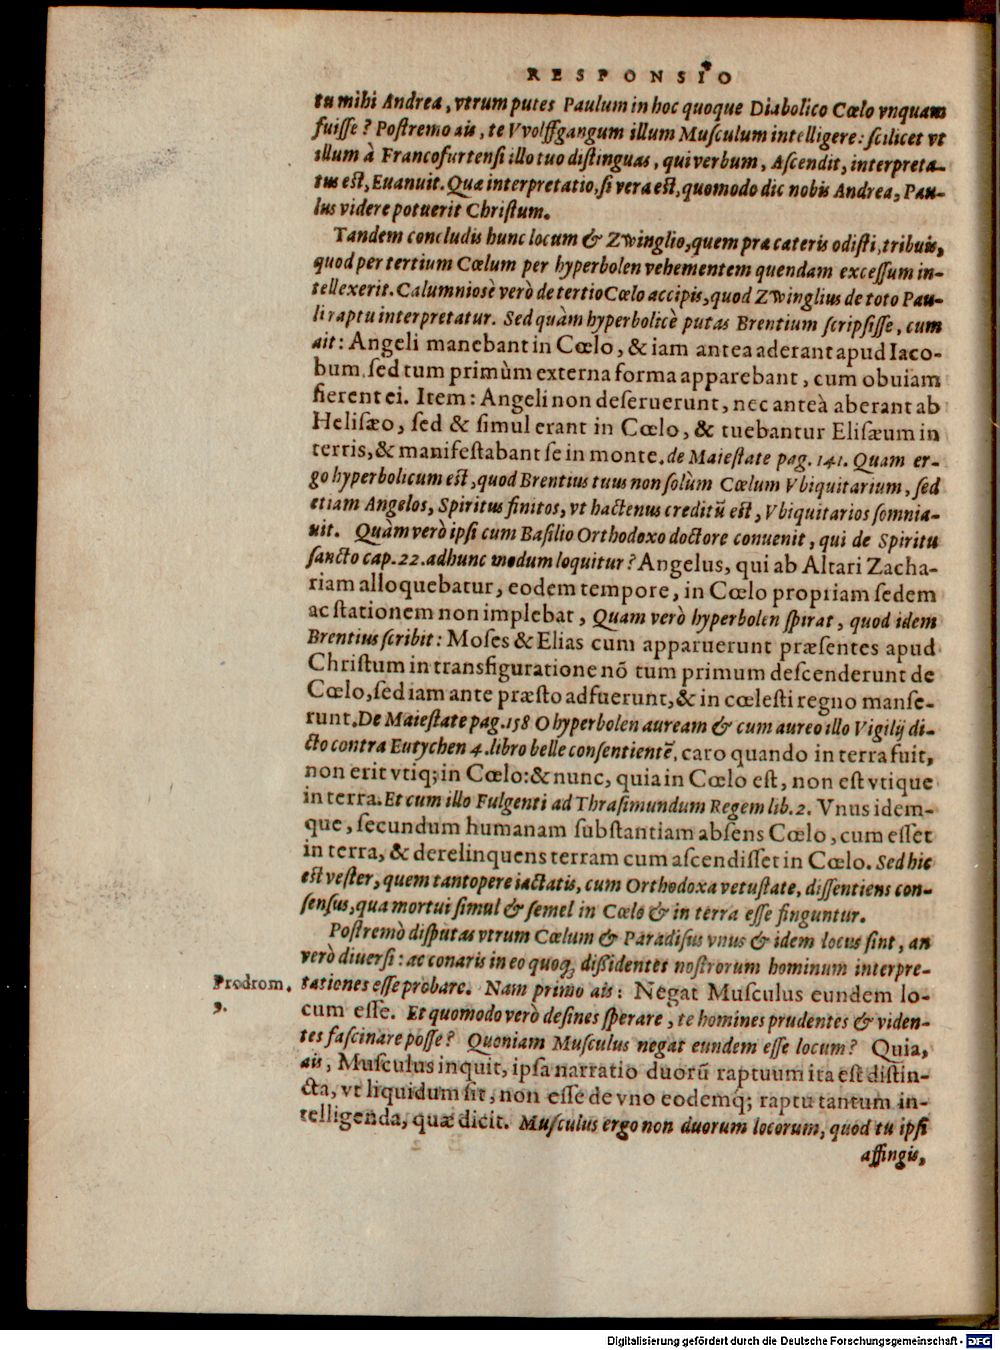 RESPONSIO
tu mihi Andrea, vtrum putes Paulum in hoc quoque Diabolico Cœlo vnquam
fuiſſe? Poſtremo ais, te Vvolffgangum illum Muſculum intelligere: ſcilicet vt
illum à Francofurtenſi illo tuo diſtinguas, qui verbum, Aſcendit, interpreta-
tus eſt, Euanuit. Quæ interpretatio, ſi vera eſt, quomodo dic nobis Andrea, Pau-
lus videre potuerit Chriſtum.
Tandem concludis hunc locum & Zwinglio, quem præ cæteris odiſti, tribuis,
quod per tertium Cœlum per hyperbolen vehementem quendam exceſſum in-
tellexerit. Calumnioſè verò de tertio Cœlo accipis, quod Zwinglius de toto Pau-
li raptu interpretatur. Sed quàm hyperbolicè putas Brentium ſcripſiſſe, cum
ait: Angeli manebant in Cœlo, & iam antea aderant apud Iaco-
bum, ſed tum primùm externa forma apparebant, cum obuiam
fierent ei. Item: Angeli non deſeruerunt, nec anteà aberant ab
Heliſæo, ſed & ſimul erant in Cœlo, & tuebantur Eliſæum in
terris, & manifeſtabant ſe in monte. de Maieſtate pag. 141. Quam er-
go hyperbolicum eſt, quod Brentius tuus non ſolùm Cœlum Vbiquitarium, ſed
etiam Angelos, Spiritus finitos, vt hactenus creditū eſt, Vbiquitarios ſomnia-
uit. Quàm verò ipſi cum Baſilio Orthodoxo doctore conuenit, qui de Spiritu
ſancto cap. 22. ad hunc modum loquitur? Angelus, qui ab Altari Zacha-
riam alloquebatur, eodem tempore, in Cœlo propriam ſedem
ac ſtationem non implebat, Quam verò hyperbolen ſpirat, quod idem
Brentius ſcribit: Moſes & Elias cum apparuerunt præſentes apud
Chriſtum in transfiguratione nō tum primum deſcenderunt de
Cœlo, ſed iam ante præſto adfuerunt, & in cœleſti regno manſe-
runt. De Maieſtate pag. 158 O hyperbolen auream & cum aureo illo Vigilij di-
cto contra Eutychen 4. libro belle conſentientē, caro quando in terra fuit,
non erit vtiq; in Cœlo: & nunc, quia in Cœlo eſt, non eſt vtique
in terra. Et cum illo Fulgenti ad Thraſimundum Regem lib. 2. Vnus idem-
que, ſecundum humanam ſubſtantiam abſens Cœlo, cum eſſet
in terra, & derelinquens terram cum aſcendiſſet in Cœlo. Sed hic
eſt veſter, quem tantopere iactatis, cum Orthodoxa vetuſtate, diſſentiens con-
ſenſus, qua mortui ſimul & ſemel in Cœlo & in terra eſſe finguntur.
Poſtremò diſputas vtrum Cœlum & Paradiſus vnus & idem locus ſint, an
verò diuerſi: ac conaris in eo quoq; diſſidentes noſtrorum hominum interpre-
Prodrom. tationes eſſe probare. Nam primo ais: Negat Muſculus eundem lo-
9. cum eſſe. Et quomodo verò deſines ſperare, te homines prudentes & viden-
tes faſcinare poſſe? Quoniam Muſculus negat eundem eſſe locum? Quia,
ais, Muſculus inquit, ipſa narratio duorū raptuum ita eſt diſtin-
cta, vt liquidum ſit, non eſſe de vno eodemq; raptu tantum in-
telligenda, quæ dicit. Muſculus ergo non duorum locorum, quod tu ipſi
affingis,
Digitalisierung gefördert durch die Deutsche Forschungsgemeinschaft - DFG